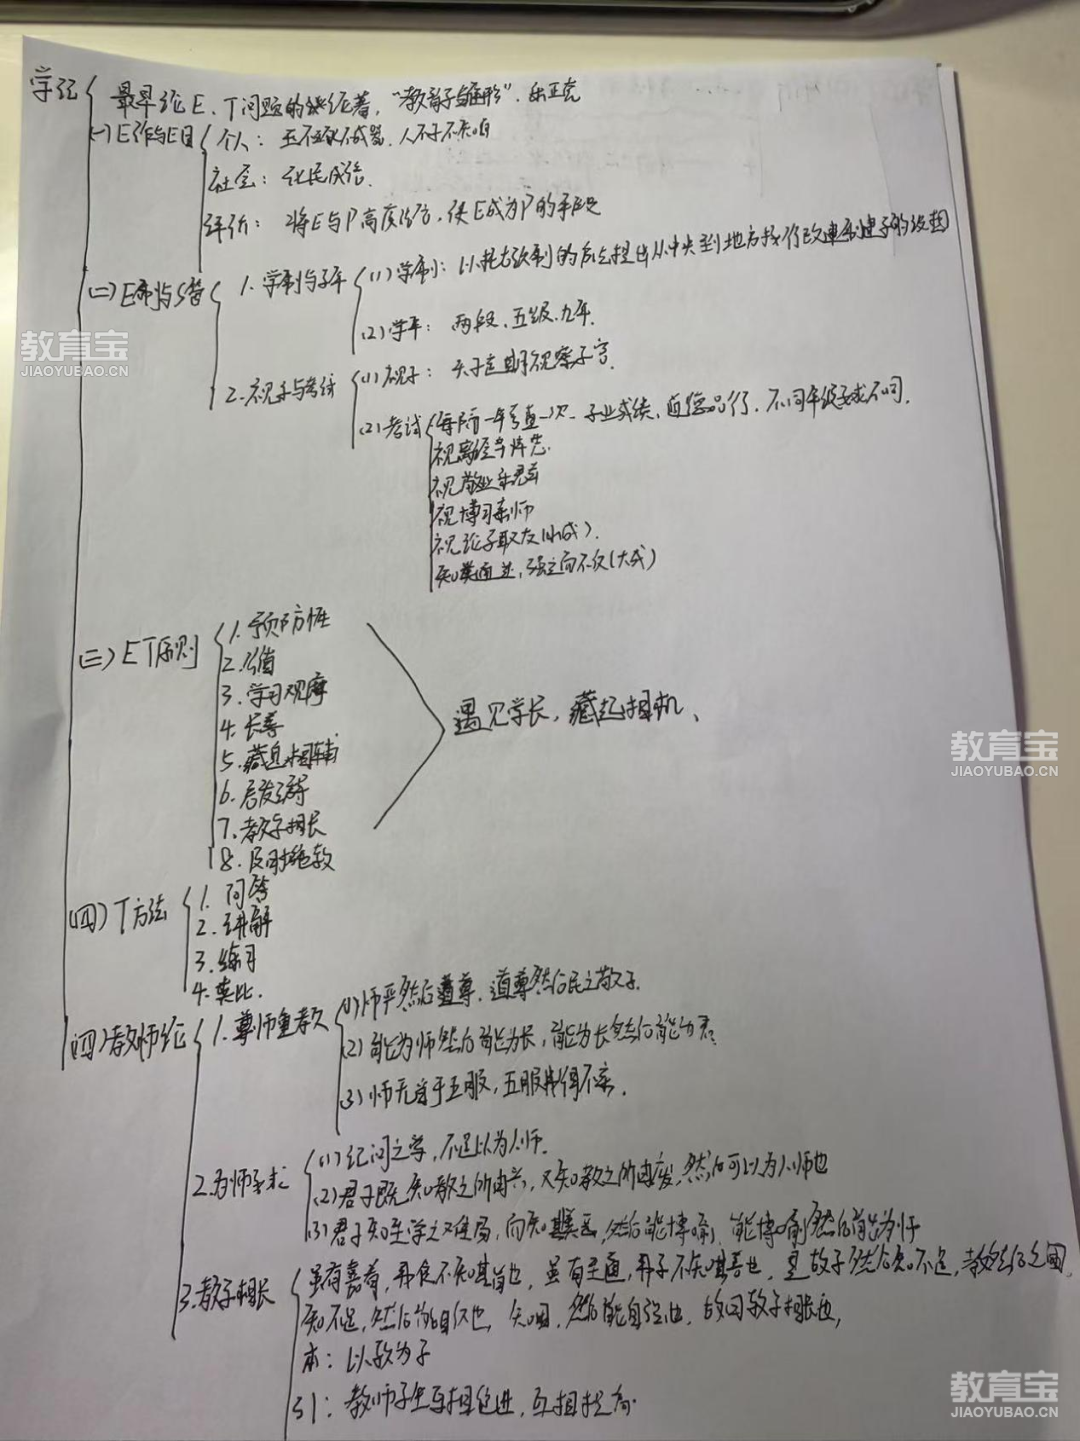 学记
最早论E、T问题的论著，“教育学雏形”．乐正克
(一)E作与E目
个人：玉不琢不成器．人不学不知道
社会：化民成俗．
评价：将E与P高度结合，使E成为P的手段
(二)E制与S管
1.学制与学年
(1)学制：以托古改制的方式提出从中央到地方按行政建制建学的设想
(2)学年：两段、五级、九年．
2.视学与考试
(1)视学：天子定期视察学宫．
(2)考试
每隔一年考查一次、学业成绩、道德品行．不同年级要求不同．
视离经辨志．
视敬业乐群
视博习亲师
视论学取友(小成)．
知类通达，强立而不反(大成)
(三)ET原则
1.预防性
2.
3.学习观摩
4.长善
5.藏息相辅
6.启发诱导
7.教学相长
8.及时施教
遇见学长，藏起相机、
(四)T方法
1.问答
2.讲解
3.练习
4.类比．
(四)教师论
1.尊师重教
(1)师严然后道尊．道尊然后民知敬学．
(2)能为师然后能为长，能为长然后能为君．
(3)师无当于五服，五服弗得不亲．
2.为师要求
(1)记问之学，不足以为人师．
(2)君子既知教之所由兴，又知教之所由废，然后可以为人师也
(3)君子知至学之难易，而知其美恶，然后能博喻，能博喻然后能为师
3.教学相长
虽有嘉肴，弗食不知其旨也，虽有至道，弗学不知其善也．是故学然后知不足，教然后知困
知不足，然后能自反也，知困，然后能自强也．故曰教学相长也，
本：以教为学
引：教师学生互相促进，互相提高．
教育宝
JIAOYUBAO.CN
教育宝
JIAOYUBAO.CN
教育宝
JIAOYUBAO.CN